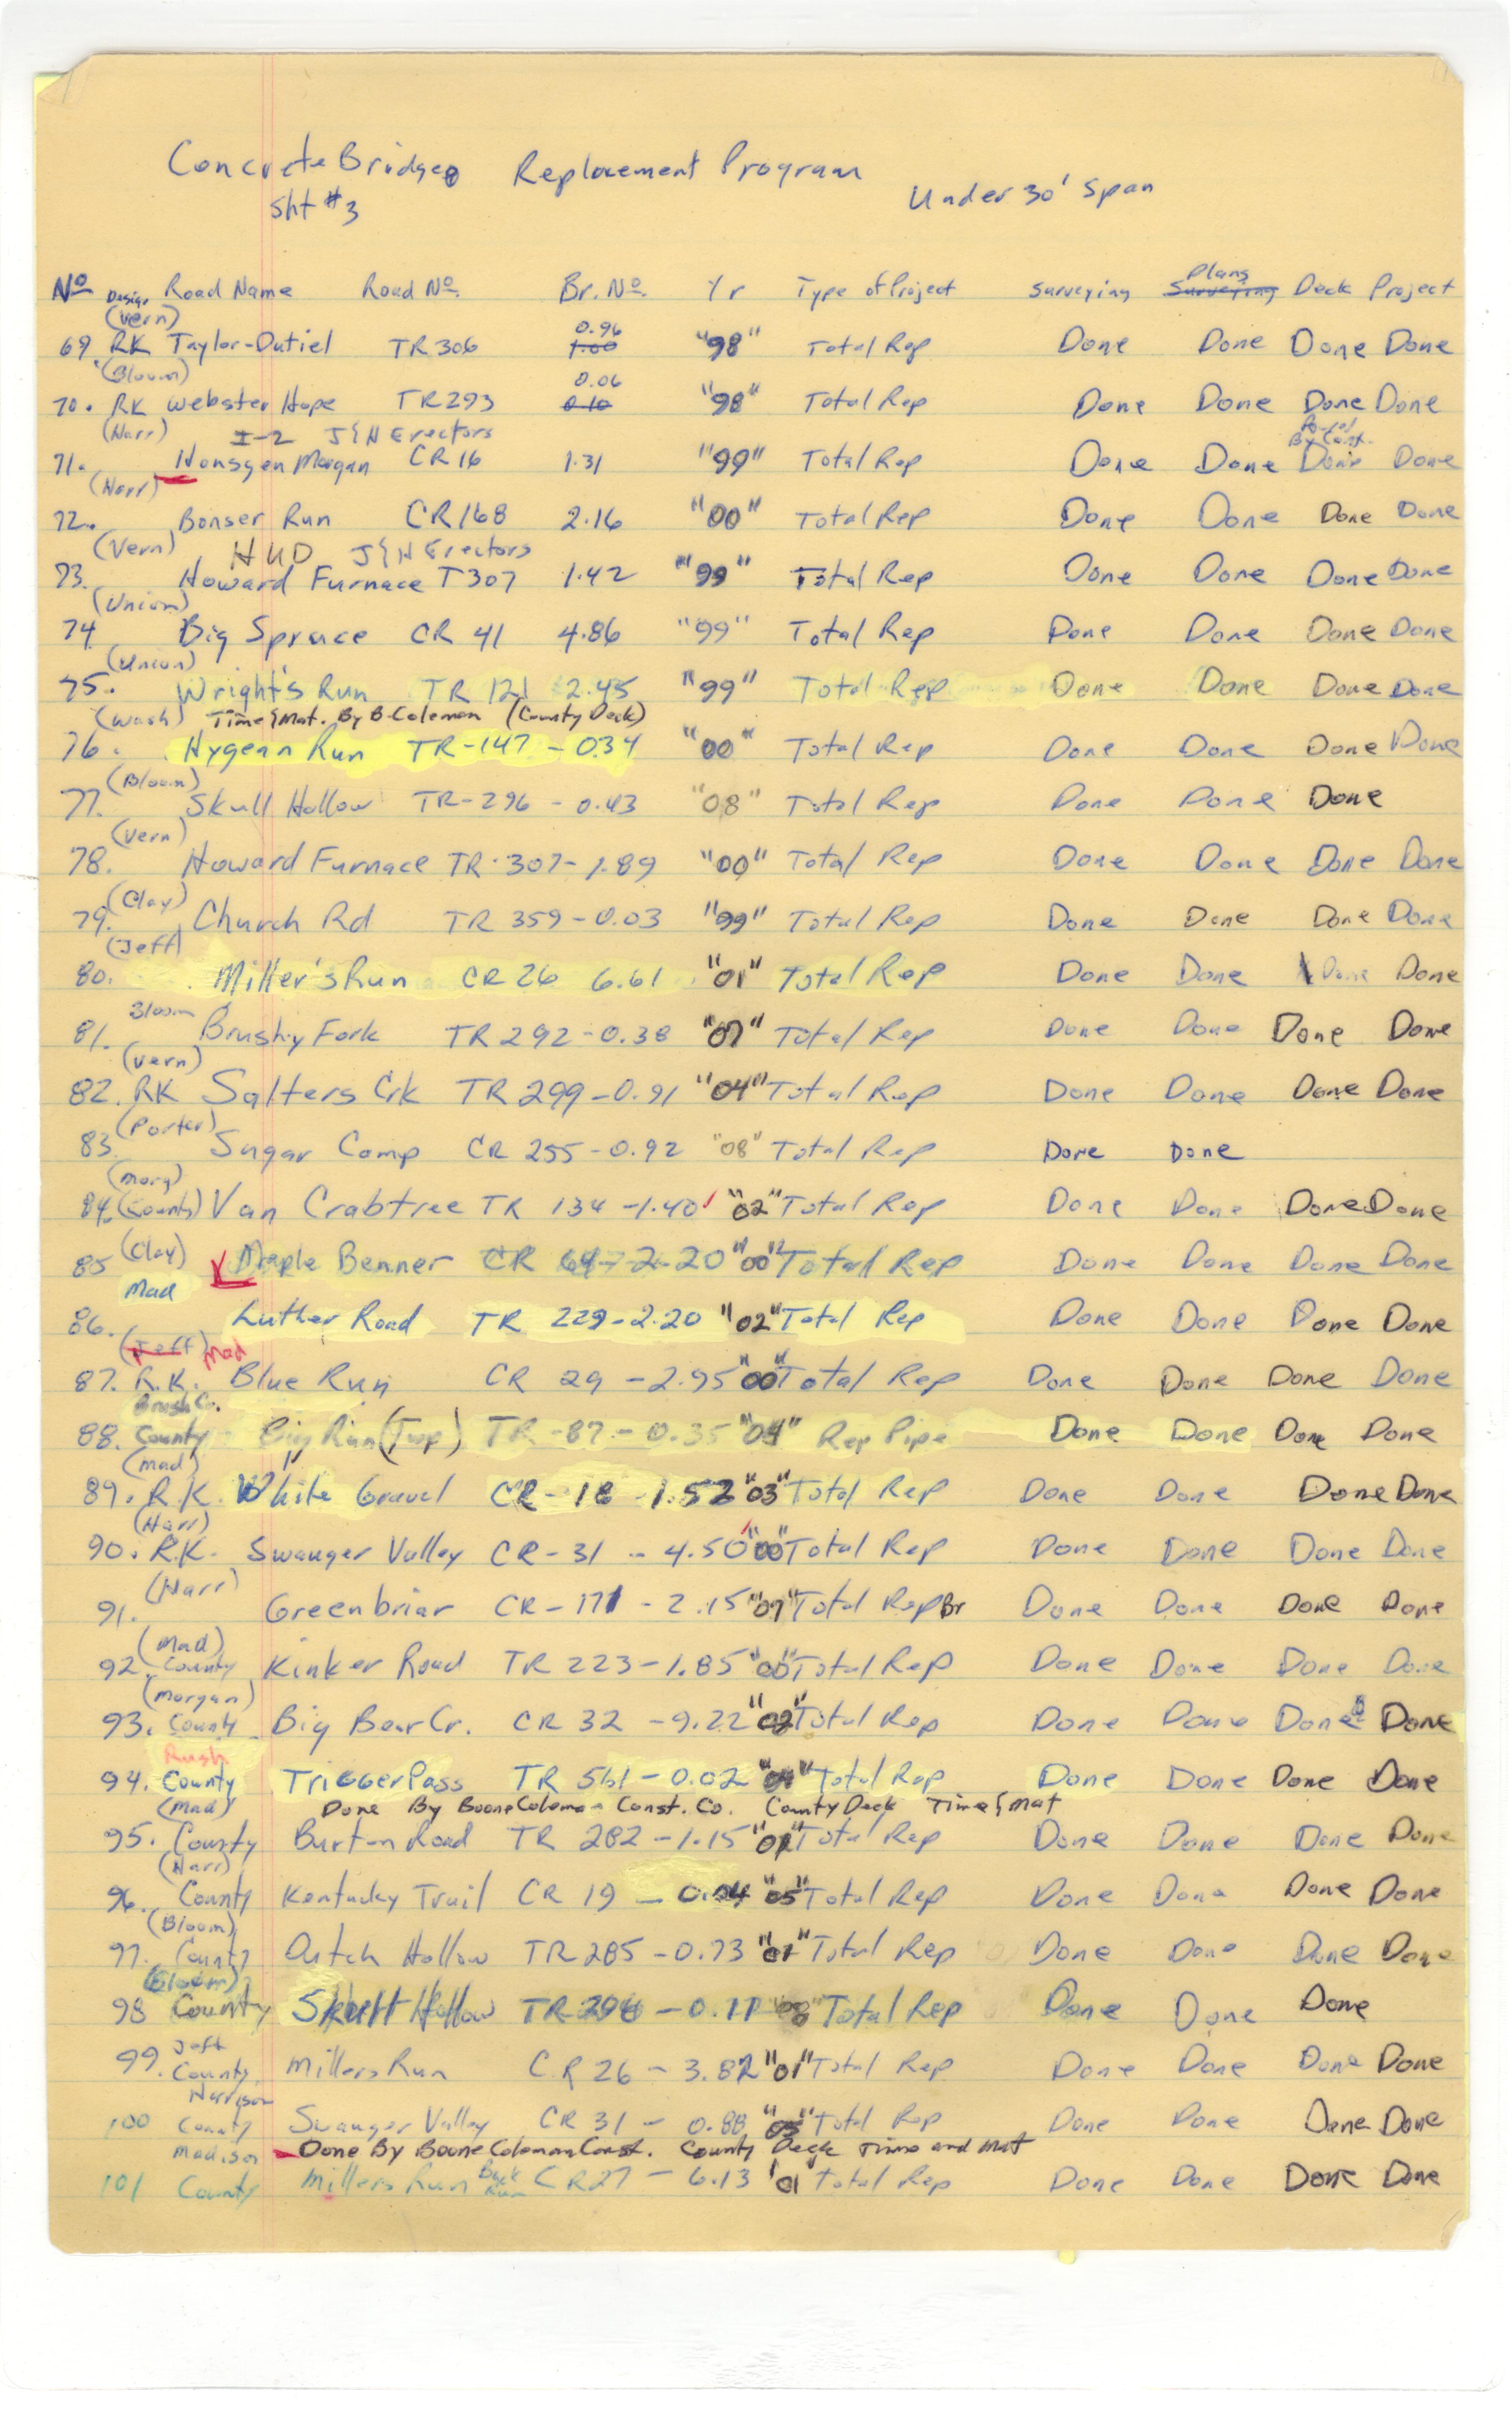 Concrete Bridge Replacement Program
Sht #3 Under 30' Span
No Design Road Name Road No. Br. No. Yr Type of Project Surveying Surveying Plans Deck Project
(Vern) 0.96
69 RK Taylor-Dutiel TR 306 1.00 "98" Total Rep Done Done Done Done
(Bloom) 0.06
70. RK Webster Hope TR 293 0.10 "98" Total Rep Done Done Done Done
(Harr) I-2 J&H Erectors By Cont.
71. Honsgen Morgan CR 16 1.31 "99" Total Rep Done Done Done Done
(Harr)
72. Bonser Run CR 168 2.16 "00" Total Rep Done Done Done Done
(Vern) HUD J&H Erectors
73. Howard Furnace T 307 1.42 "99" Total Rep Done Done Done Done
(Union)
74 Big Spruce CR 41 4.86 "99" Total Rep Done Done Done Done
(Union)
75. Wright's Run TR 121 2.45 "99" Total Rep Done Done Done Done
(Wash) Time & Mat. By B. Coleman (County Deck)
76. Hygean Run TR-147 - 0.34 "00" Total Rep Done Done Done Done
(Bloom)
77. Skull Hollow TR-296 - 0.43 "08" Total Rep Done Done Done
(Vern)
78. Howard Furnace TR-307- 1.89 "00" Total Rep Done Done Done Done
(Clay)
79. Church Rd TR 359 - 0.03 "99" Total Rep Done Done Done Done
(Jeff)
80. Miller's Run CR 26 6.61 "01" Total Rep Done Done Done Done
Bloom
81. Brushy Fork TR 292 - 0.38 Total Rep Done Done Done Done
(Vern)
82. RK Salters Crk TR 299 - 0.91 "04" Total Rep Done Done Done Done
(Porter)
83. Sugar Camp CR 255 - 0.92 "08" Total Rep Done Done
(Morg)
84. (County) Van Crabtree TR 134 - 1.40 "02" Total Rep Done Done Done Done
(Clay)
85 Maple Benner CR 64-2.20 "00" Total Rep Done Done Done Done
Mad
86. Luther Road TR 229-2.20 "02" Total Rep Done Done Done Done
(Jeff) Mad
87. R.K. Blue Run CR 29 - 2.95 "00" Total Rep Done Done Done Done
Brush Cr.
88. County Big Run (Twp) TR - 87 - 0.35 "04" Rep Pipe Done Done Done Done
(Mad)
89. R.K. White Gravel CR - 18 - 1.52 "03" Total Rep Done Done Done Done
(Harr)
90. R.K. Swauger Valley CR - 31 - 4.50 "00" Total Rep Done Done Done Done
(Harr)
91. Greenbriar CR - 171 - 2.15 "07" Total Rep Br Done Done Done Done
(Mad)
92. County Kinker Road TR 223 - 1.85 "00" Total Rep Done Done Done Done
(Morgan)
93. County Big Bear Cr. CR 32 - 9.22 "02" Total Rep Done Done Done Done
Rush
94. County Trigger Pass TR 561 - 0.02 "04" Total Rep Done Done Done Done
(Mad) Done By Boone Coleman Const. Co. County Deck Time & Mat
95. County Burton Road TR 282 - 1.15 "01" Total Rep Done Done Done Done
(Harr)
96. County Kentucky Trail CR 19 - 0.04 "05" Total Rep Done Done Done Done
(Bloom)
97. County Dutch Hollow TR 285 - 0.73 "01" Total Rep Done Done Done Done
(Bloom)
98 County Skull Hollow TR 296 - 0.11 "08" Total Rep Done Done Done
Jeff
99. County Millers Run CR 26 - 3.82 "01" Total Rep Done Done Done Done
Harrison
100 County Swauger Valley CR 31 - 0.88 Total Rep Done Done Done Done
Madison Done By Boone Coleman Const. County Deck Time and Mat
101 County Millers Run Back Run CR 27 - 6.13 '01' Total Rep Done Done Done Done